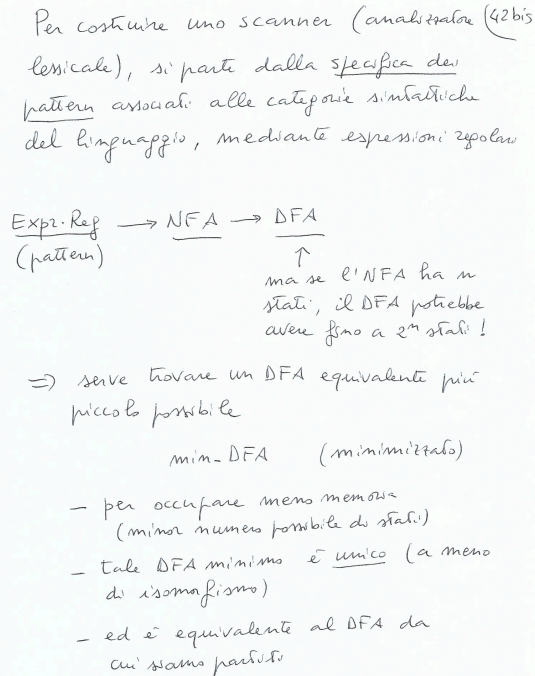 Per costruire uno scanner (analizzatore (42bis
lessicale), si parte dalla specifica dei
pattern associati alle categorie sintattiche
del linguaggio, mediante espressioni regolari
Expr. Reg → NFA → DFA
(pattern) ↑
ma se l'NFA ha n
stati, il DFA potrebbe
avere fino a 2ⁿ stati!
⇒ serve trovare un DFA equivalente più
piccolo possibile
min-DFA (minimizzato)
- per occupare meno memoria
(minor numero possibile di stati)
- tale DFA minimo è unico (a meno
di isomorfismo)
- ed è equivalente al DFA da
cui siamo partiti